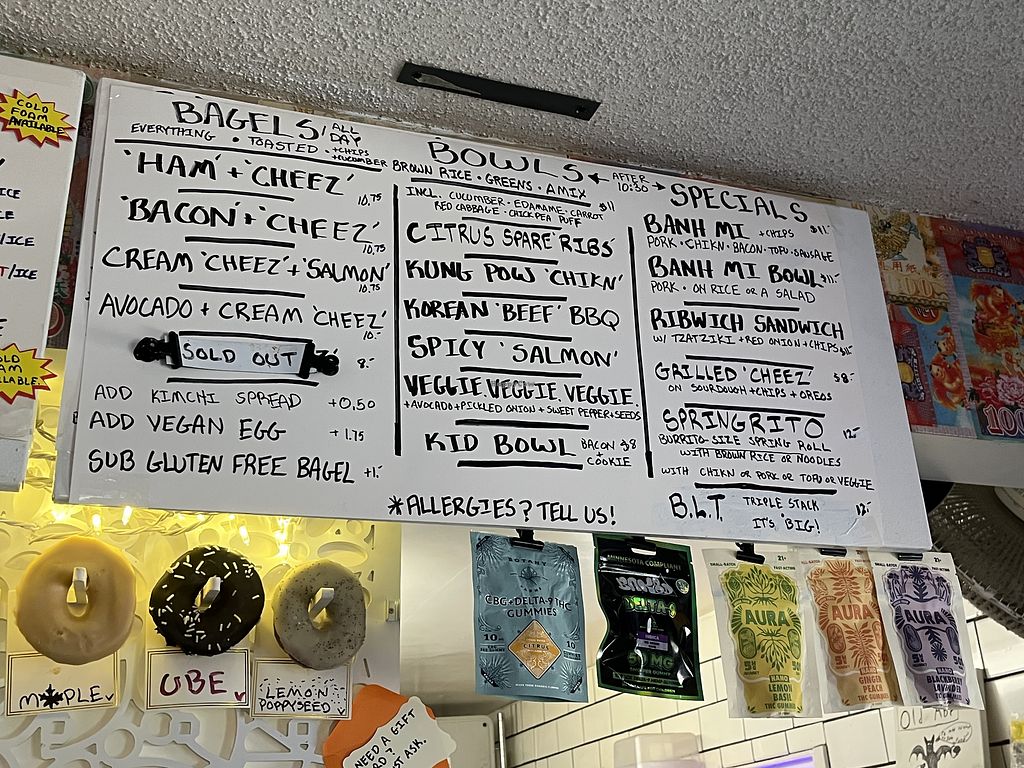 COLD
FOAM
AVAILABLE
ICE
/ICE
T/ICE
BAGELS ALL
DAY
EVERYTHING • TOASTED • +CHIPS
+CUCUMBER
'HAM' + 'CHEEZ'
10.75
'BACON' + 'CHEEZ'
10.75
CREAM 'CHEEZ' + 'SALMON'
10.75
AVOCADO + CREAM 'CHEEZ'
10.-
SOLD OUT 8.-
ADD KIMCHI SPREAD +0.50
ADD VEGAN EGG +1.75
SUB GLUTEN FREE BAGEL +1.-
BOWLS
BROWN RICE • GREENS • A MIX
INCL. CUCUMBER • EDAMAME • CARROT $11
RED CABBAGE • CHICKPEA PUFF
CITRUS SPARE 'RIBS'
KUNG POW 'CHIKN'
KOREAN 'BEEF' BBQ
SPICY 'SALMON'
VEGGIE.VEGGIE.VEGGIE.
+AVOCADO+PICKLED ONION + SWEET PEPPER+SEEDS
KID BOWL BACON $8
+
COOKIE
*ALLERGIES? TELL US!
AFTER
10:30
SPECIALS
BANH MI +CHIPS $11.-
PORK • CHIKN • BACON • TOFU • SAUSAGE
BANH MI BOWL $11.-
PORK • ON RICE OR A SALAD
RIBWICH SANDWICH
W/ TZATZIKI + RED ONION + CHIPS
GRILLED 'CHEEZ' $8.-
ON SOURDOUGH + CHIPS + OREOS
SPRINGRITO 12.-
BURRITO-SIZE SPRING ROLL
WITH BROWN RICE OR NOODLES
WITH CHIKN OR PORK OR TOFU OR VEGGIE
B.L.T. TRIPLE STACK 12.-
IT'S 'BIG'!
100
MAPLE
UBE
LEMON
POPPYSEED
NEED A GIFT
JUST ASK.
BOTANY
CBG+DELTA-9 THC
GUMMIES
10
10
CITRUS
MINNESOTA COMPLIANT
DELTA-9
INDICA
50 MG
SMALL-BATCH
21+
FAST-ACTING
AURA
NANO
LEMON
BASIL
THC GUMMIES
21+
AURA
GINGER
PEACH
THC GUMMIES
21+
AURA
BLACKBERRY
LAVENDER